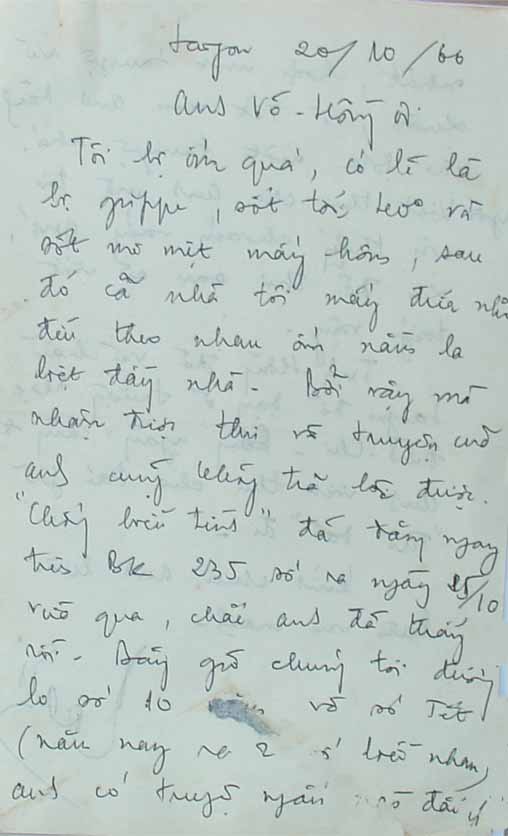 Saigon 20/10/66
Anh Võ-Hồng ơi
Tôi bị ốm quá, có lẽ là
bị grippe, sốt tới 40° và
sốt mê mệt mấy hôm, sau
đó cả nhà tôi mấy đứa nhỏ
đều theo nhau ốm nằm la
liệt đầy nhà. Bởi vậy mà
nhận được thư và truyện của
anh cũng không trả lời được.
"Chúng biểu tình" đã đăng ngay
trên BK 235 số ra ngày 15/10
vừa qua, chắc anh đã thấy
rồi. Bây giờ chúng tôi đương
lo số 10 và số Tết
(năm nay ra 2 số liền nhau)
anh có truyện ngắn